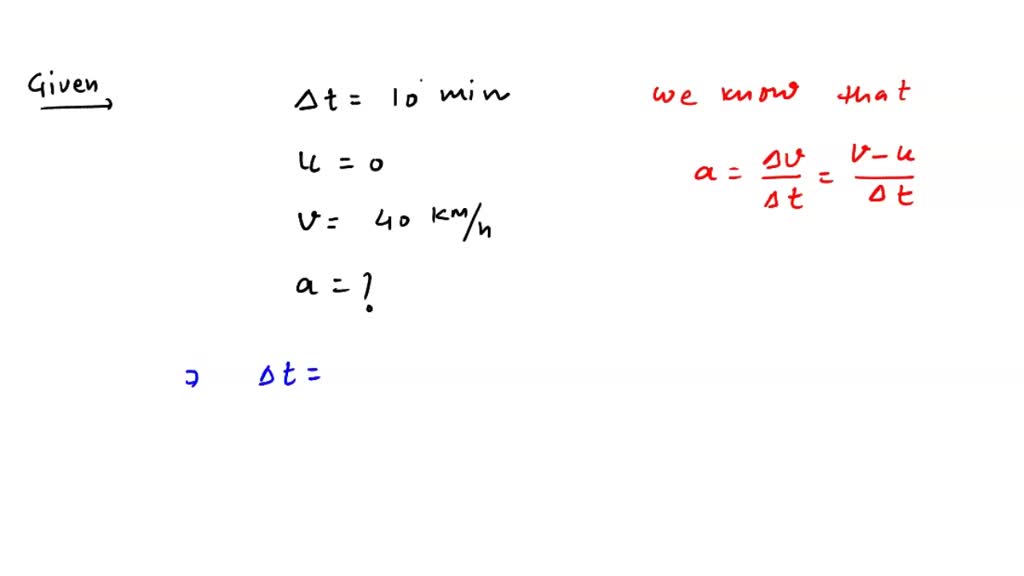 Given
Δt = 10 min
u = 0
v = 40 km/h
a = ?
we know that
a = Δv/Δt = v-u/Δt
⇒ Δt =